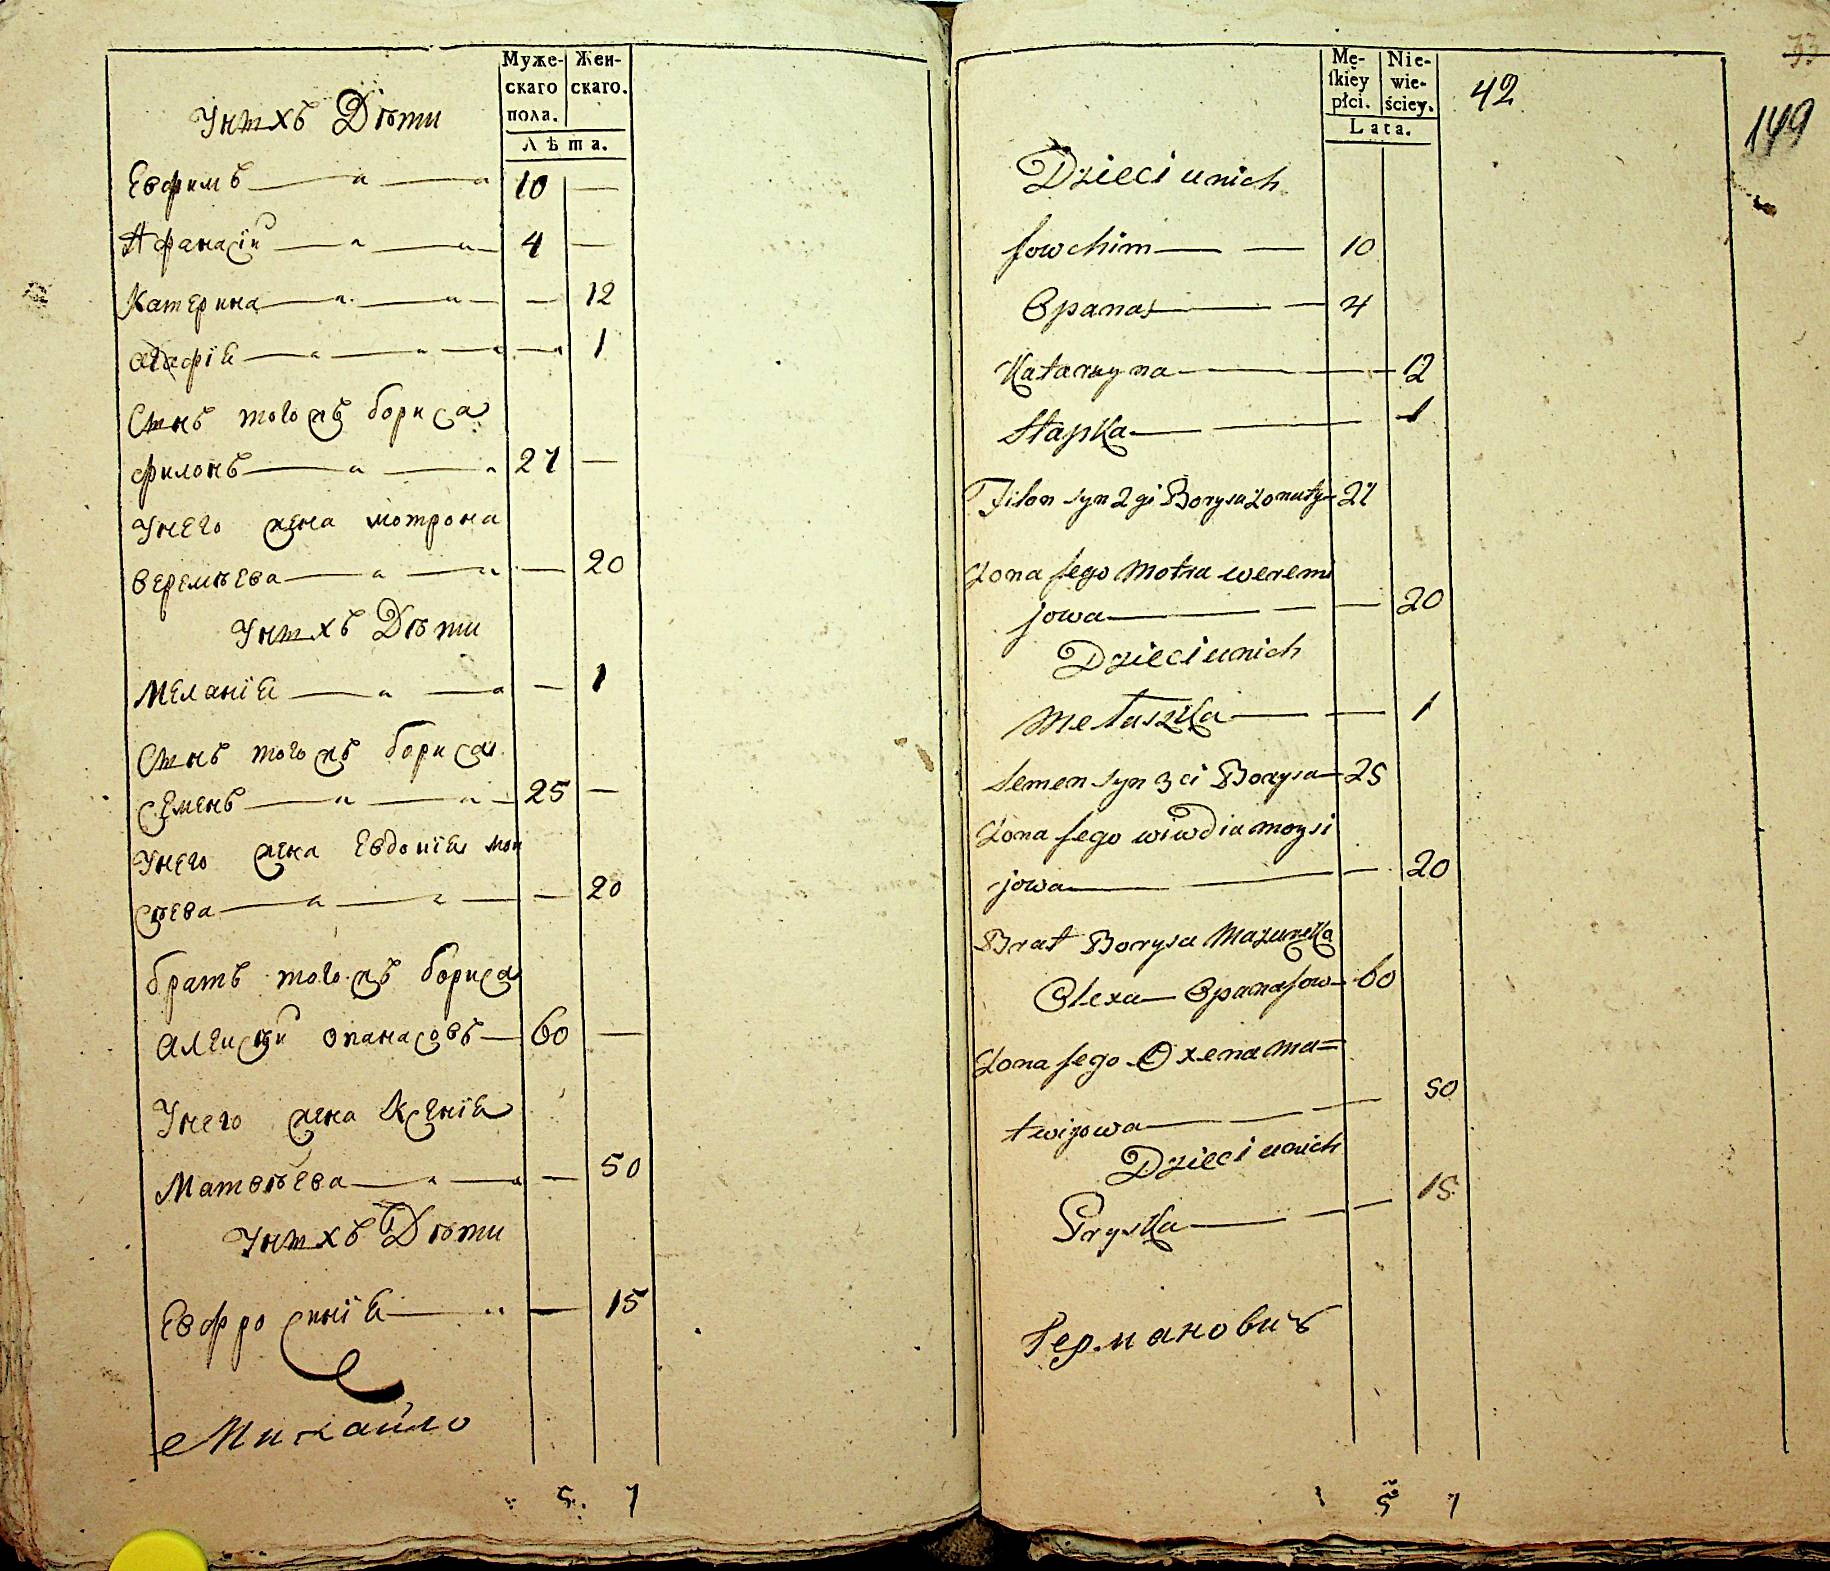 Муже- Жен-
скаго скаго.
пола.
Лѣта.
Унихъ Дѣти
Евфимъ 10 —
Афанасій 4 —
Катерина — 12
Агафія — 1
Сынъ тогожъ бориса
филонъ 21 —
Унего жена мотрона
веремѣева — 20
Унихъ Дѣти
Меланія — 1
Сынъ тогожъ бориса
семенъ 25 —
Унего жена Евдокія мои
сѣева — 20
братъ тогожъ бориса
Алексѣй опанасовъ 60 —
Унего жена Ксенія
Матвѣева — 50
Унихъ Дѣти
Евфросинія — 15
Михайло
5. 7
33
Mę- Nie-
skiey wie-
płci. ściey.
Lata.
42
149
Dzieci unich
Jowchim 10
Opanas 4
Katarzyna — 12
Hapka 1
Filon syn 2gi Borysa żonaty 21
Żona Jego Motra weremi
jowa — 20
Dzieci unich
Melaszka — 1
Semen syn 3ci Borysa 25
Żona Jego wiwdia moysi
jowa — 20
Brat Borysa Mazurenka
Olexa Opanasow 60
Żona Jego Oxena Ma=
twijowa 50
Dzieci unich
Pryska — 15
Германовичъ
5 7